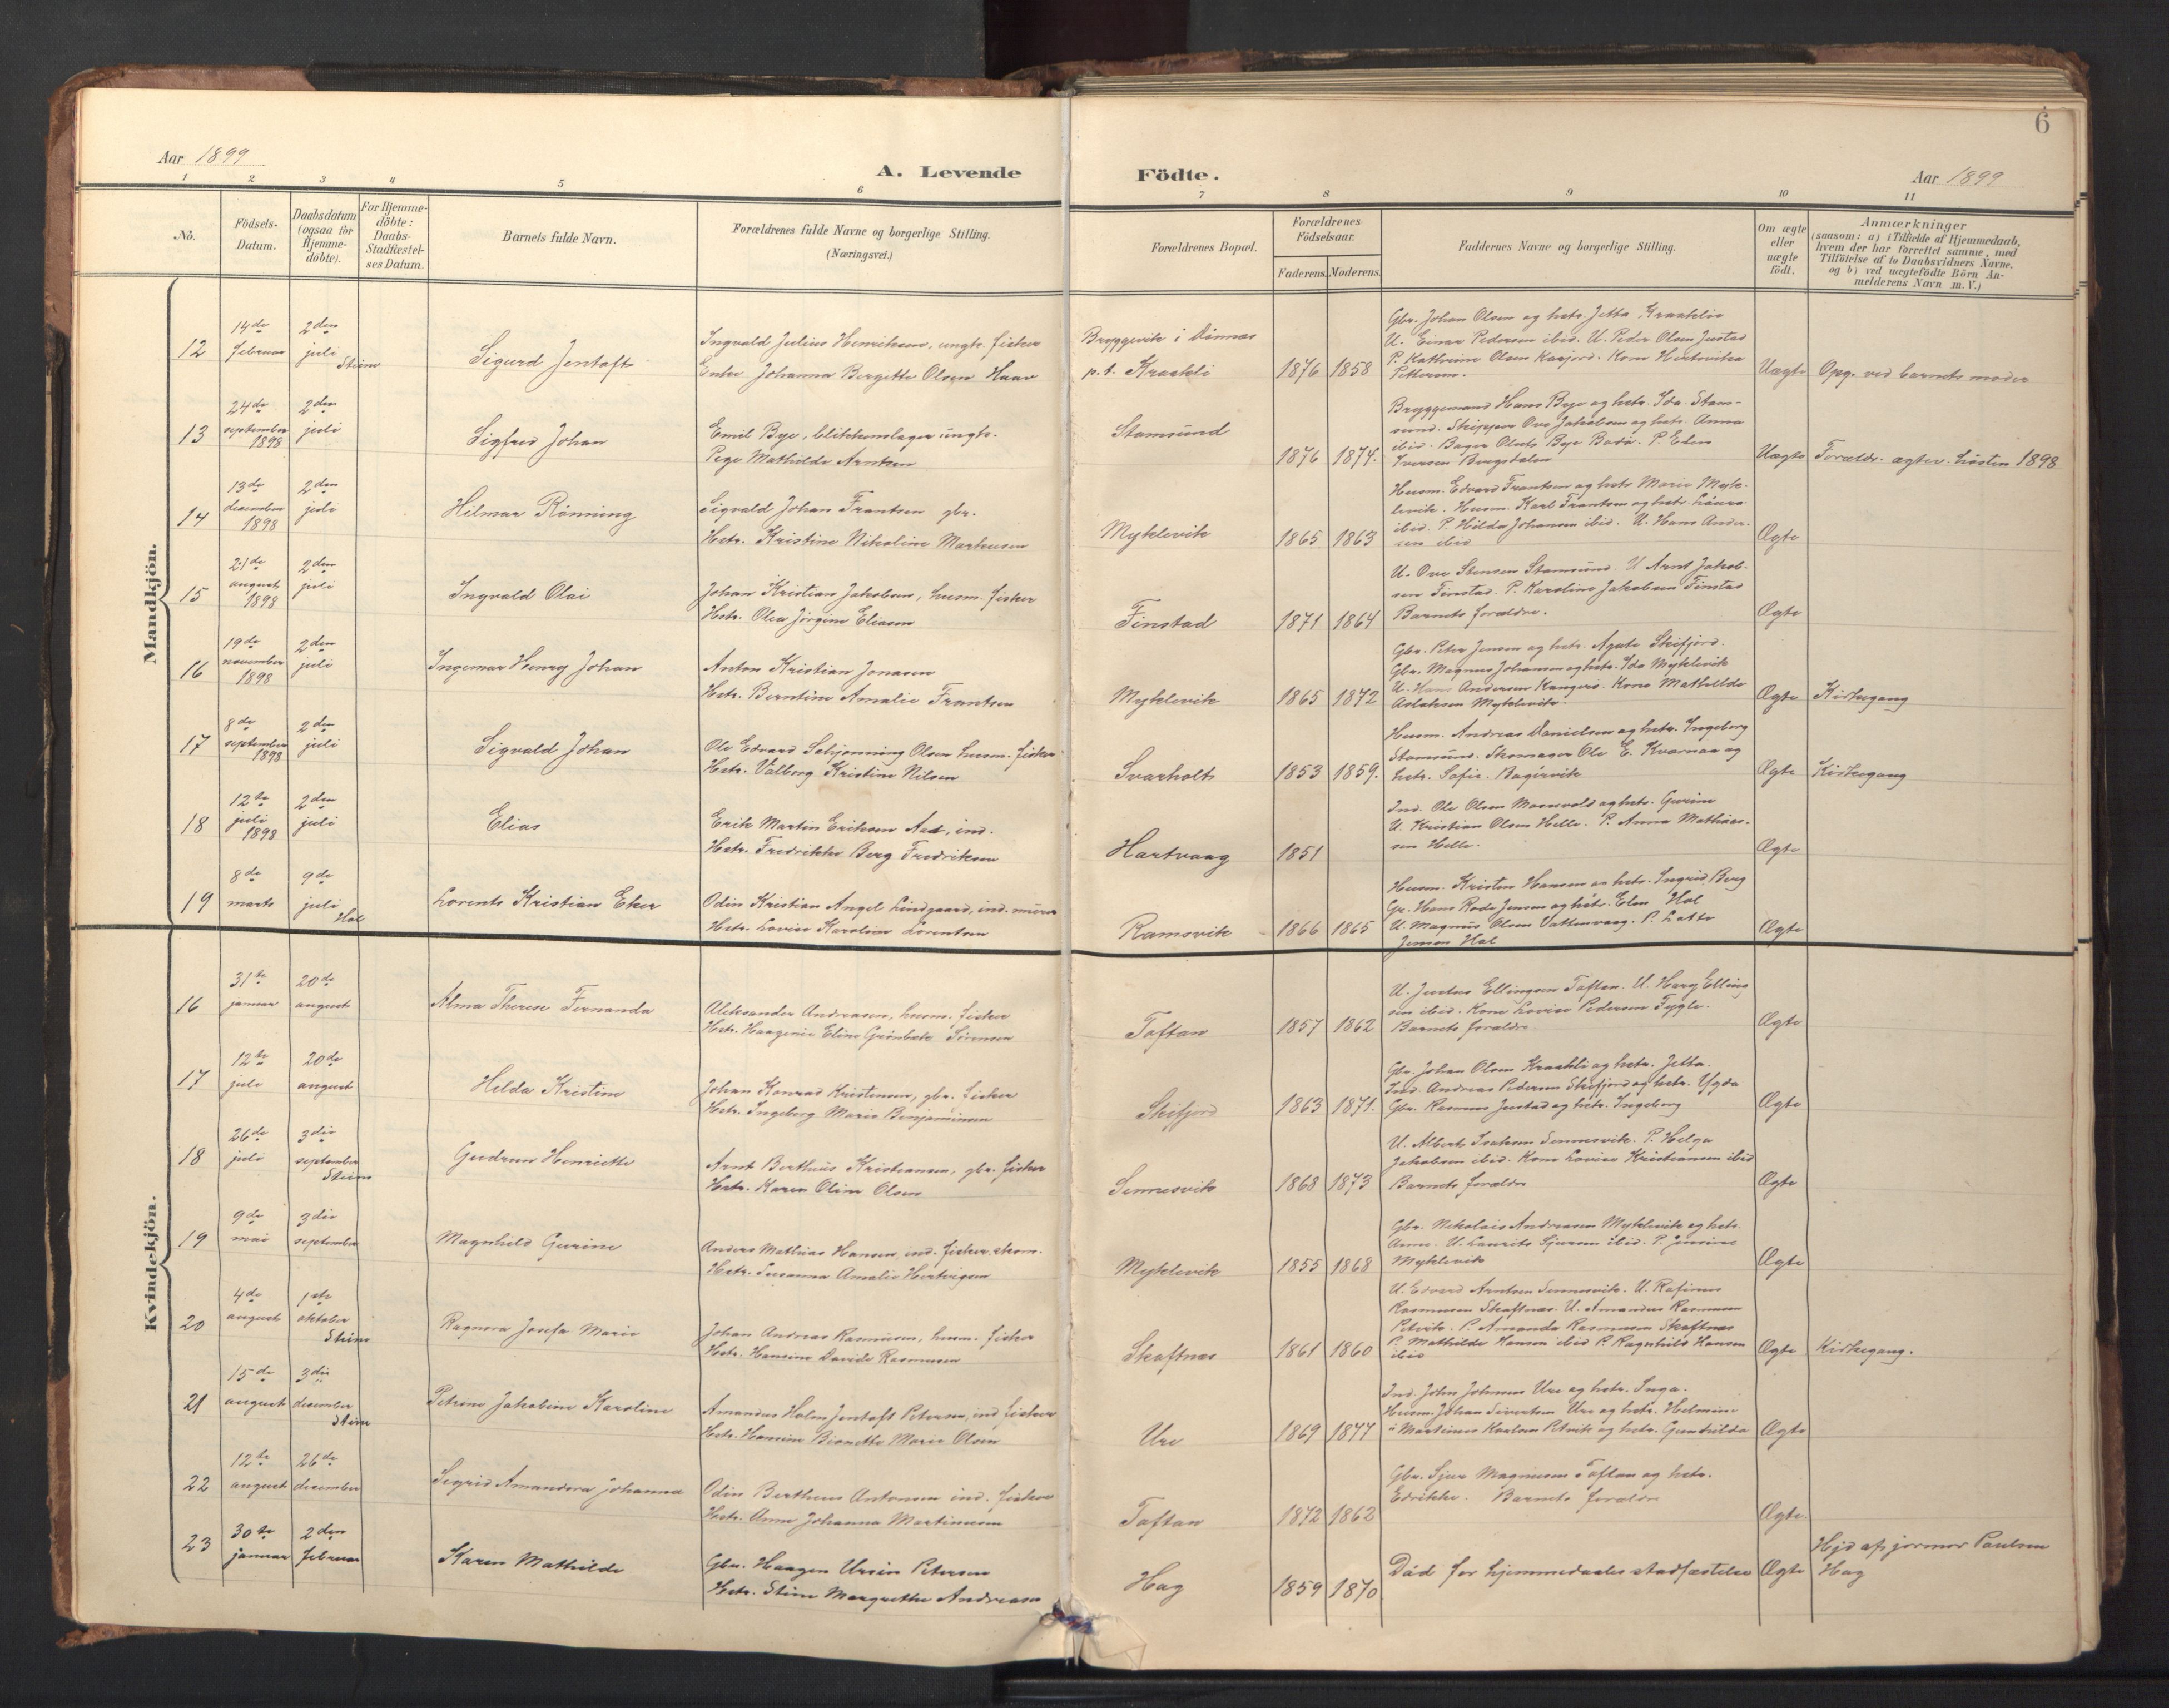 6
Aar 1899
A. Levende
Födte.
Aar 1899
1 2 3 4 5 6 7 8 9 10 11
No.
Födsels-
Datum.
Daabsdatum
(ogsaa for
Hjemme-
döbte).
For Hjemme-
döbte:
Daabs-
Stadfæstel-
ses Datum.
Barnets fulde Navn.
Forældrenes fulde Navne og borgerlige Stilling.
(Næringsvei.)
Forældrenes Bopæl.
Forældrenes
Födselsaar.
Faderens. Moderens.
Faddernes Navne og borgerlige Stilling.
Om ægte
eller
uægte
födt.
Anmærkninger
(saasom: a) i Tilfælde af Hjemmedaab,
hvem der har forrettet samme, med
Tilföielse af to Daabsvidners Navne,
og b) ved uægtefödte Börn An-
melderens Navn m.V.)
Mandkjön.
12
14de
februar
2den
juli
Stene
Sigurd Jentoft
Ingvald Julius Henriksen, ungk. fisker
Enke Johanna Bergitte Olsen Haav
Bryggevik i
p.t. Kraakli
1876 1858
Gbr. Johan Olsen og hstr. Jetta Kraaklio
U. Einar Pedersen ibid. U. Peder Olsen Justad
P. Kathrine Olsen
Pettersen.
Uægte
Opg. ved barnets moder
13
24de
september
1898
2den
juli
Sigfred Johan
Emil Bye, blikkenslager ungk.
Pige Mathilde Arntsen
Stamsund
1876 1874.
Bryggemand Hans Bye og hstr. Ida Stam-
sund. Skipper Ove Jakobsen og hstr. Anna
ibid. Bager Bye Bodö. P. Elen
Iversen
Uægte
Forældr. ægtev. hösten 1898
14
13de
december
1898
2den
juli
Hilmar Rönning
Sigvald Johan Frantsen gbr.
Hstr. Kristine Nikoline Markusen
Myklevik
1865 1863
Husm. Edvard Frantsen og hstr Marie Myk-
levik. Husm. Karl Frantsen og hstr. Laura
ibid. P. Hilda Johansen ibid. U. Hans Ander-
sen ibid
Ægte
15
21de
august
1898
2den
juli
Ingvald Olai
Johan Kristian Jakobsen, husm. fisker
Hstr. Olea Jörgine Eliasen
Finstad
1871 1864
U. Ove Stensen Stamsund. U Arnt Jakob-
sen Finstad. P. Karoline Jakobsen Finstad
Barnets forældre.
Ægte
16
19de
november
1898
2den
juli
Ingemar Henry Johan
Anton Kristian Jonasen
Hstr. Berntine Amalie Frantsen
Myklevik
1865 1872
Gbr. Peter Jensen og hstr. Agate Skifjord.
Gbr. Magnus Johansen og hstr. Ida Myklevik
U. Hans Andersen Kangeris. Kone Mathilde
Aslaksen Myklevik.
Ægte
Kirkegang
17
8de
september
1898
2den
juli
Sigvald Johan
Ole Edvard Schjønning Olsen husm. fisker
Hstr. Valborg Kristine Nilsen
Svarholt
1853 1859.
Husm. Andreas Danielsen og hstr. Ingeborg
Stamsund. Skomager Ole E. Kvarnaa og
hstr. Sofie.
Ægte
Kirkegang
18
12te
juli
1898
2den
juli
Elias
Erik Martin Eriksen Aas, ind.
Hstr. Fredrikke Berg Fredriksen
Hartvaag
1851
Ind. Ole Olsen og hstr. Gurine
U. Kristian Olsen Helle. P. Anna Mathias-
sen Helle.
Ægte
19
8de
marts
9de
juli
Hol
Lorents Kristian Eker
Odin Kristian Angel Lindgaard, ind. murer
Hstr. Lovise Karoline Lorentsen
Ramsvik
1866 1865
Husm. Kristen Hansen og hstr. Ingrid Berg
Gr. Hans Rode Jensen og hstr. Elen Hol
U. Magnus Olsen Vattenvaag. P. Lotte
Jensen Hol
Ægte
Kvindekjön.
16
31te
januar
20de
august
Alma Therese Fernanda
Aleksander Andreasen, husm. fisker
Hstr. Haagenie Eline Grönbæk Sörensen
Toftan
1857 1862
U. Justus Ellingsen Toftan. U. Harg Elling
sen ibid. Kone Lovise Pedersen Fygle.
Barnets forældre
Ægte
17
12te
juli
20de
august
Hilda Kristine
Johan Konrad Kristensen, gbr. fisker
Hstr. Ingeborg Marie Benjaminsen
Skifjord
1863 1871.
Gbr Johan Olsen Kraakli og hstr. Jetta.
Ind. Andreas Pedersen Skifjord og hstr.
Gbr. Rasmus Justad og hstr. Ingeborg
Ægte
18
26de
juli
3die
september
Stene
Gudrun Henriette
Arnt Berthëus Kristiansen, gbr. fisker
Hstr. Karen Oline Olsen
Sennesvik
1868 1873
U. Albert Isaksen Sennesvik. P. Helga
Jakobsen ibid. Kone Lovise Kristiansen ibid
Barnets forældre
Ægte
19
9de
mai
3die
september
Magnhild Gurine
Anders Mathias Hansen, ind. fisker, skom.
Hstr. Susanna Amalie Hertvigsen
Myklevik
1855 1868
Gbr. Nikolais Andreasen Myklevik og hstr.
Anne. U. Laurits Sjursen ibid. P. Jensine
Myklevik
Ægte
20
4de
august
1ste
oktober
Stene
Ragnora Josefa Marie
Johan Andreas Rasmussen, husm. fisker
Hstr. Hansine Davida Rasmussen
Skaftnes
1861 1860
U. Edvard Arntsen Sennesvik. U. Rafinus
Rasmussen Skaftnæs. U. Amandus Rasmussen
Petvik. P. Amanda Rasmussen Skaftnæs
P. Mathilde Hansen ibid P. Ragnhild Hansen
ibid
Ægte
Kirkegang.
21
15de
august
3die
december
Stene
Petrine Jakobine Karoline
Amandus Holm Jentoft Petersen, ind. fisker
Hstr. Hansine Marie Olsen
Ure
1869 1877
Ind. John Johnsen Ure og hstr. Inga.
Husm. Johan Sivertsen Ure og hstr. Helmine
" Martinus Karlsen Petvik og hstr. Gunhilda
Ægte
22
12te
august
26de
december
Sigrid Amandora Johanna
Odin Bertheus Antonsen ind. fisker
Hstr. Anne Johanna Martinusen
Toftan
1872 1862
Gbr. Sjur Magnusen Toftan og hstr.
Edrikke. Barnets forældre
Ægte.
23
30te
januar
2den
februar
Karen Mathilde
Gbr. Haagen Ursin Petersen
Hstr. Stine Margrethe Andreasen
Hag
1859 1870
Död for hjemmedaabs stadfæstelse
Ægte
Hjd af jormor Paulsen
Hag